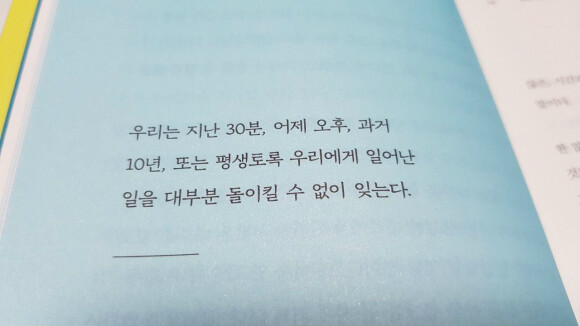 우리는 지난 30분, 어제 오후, 과거
10년, 또는 평생토록 우리에게 일어난
일을 대부분 돌이킬 수 없이 잊는다.